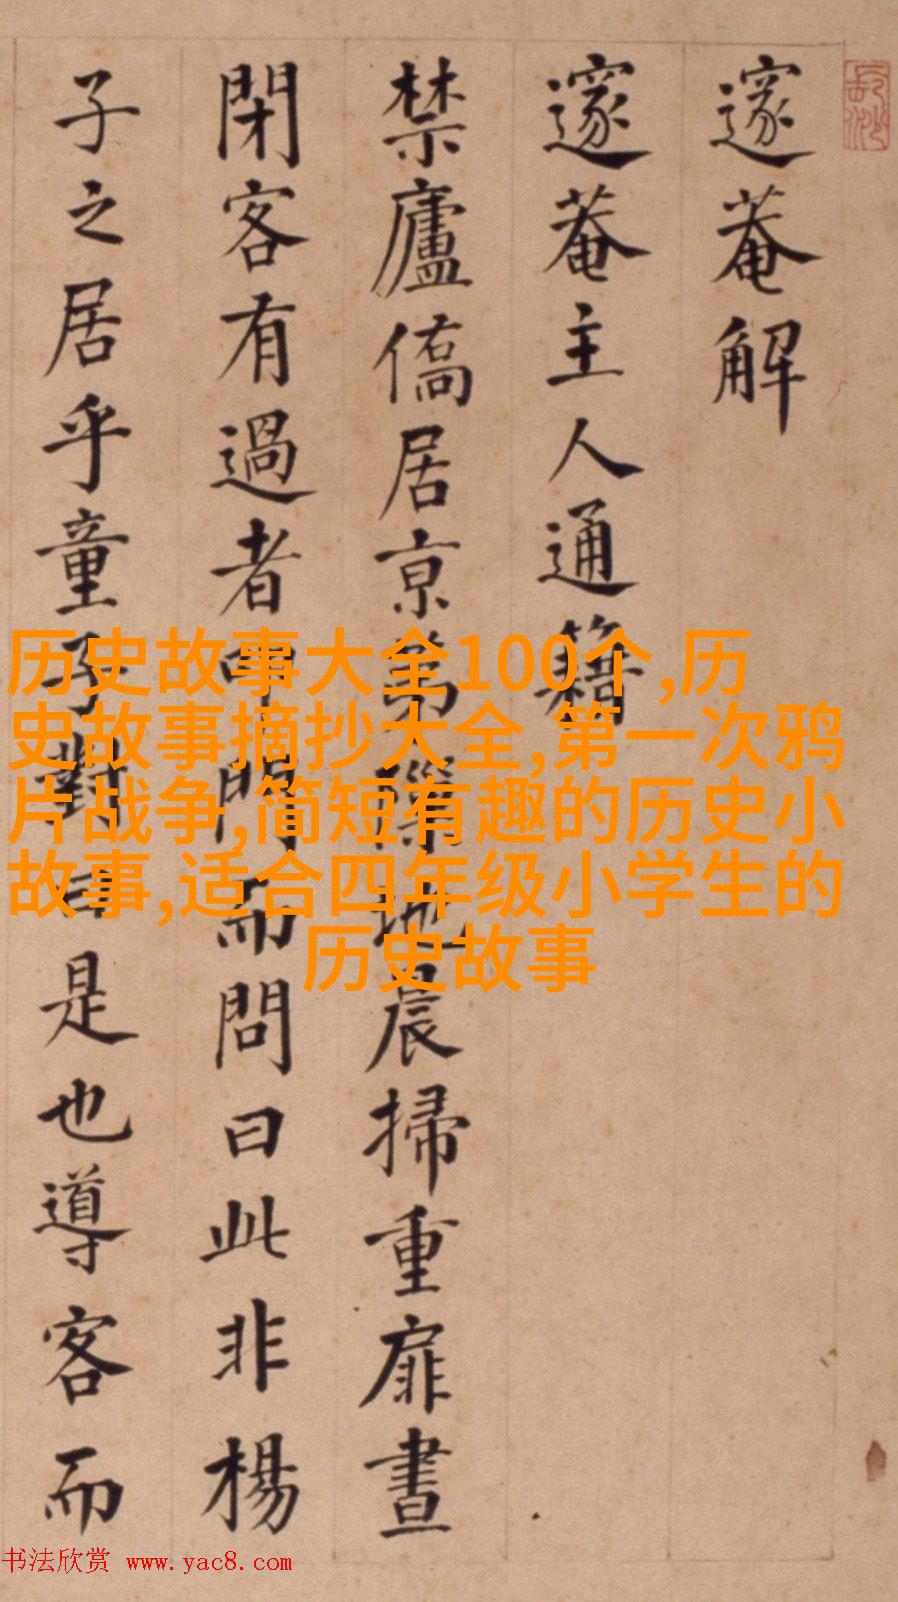 邃菴解
邃菴主人通籍
禁廬僑居京第隙地晨掃重扉晝
閉客有過者叩門而問曰此非楊
子之居乎童子對曰是也導客而
历史故事大全100个,历
史故事摘抄大全,第一次鸦
片战争,简短有趣的历史小
故事,适合四年级小学生的
历史故事
书法欣赏 www.yac8.com